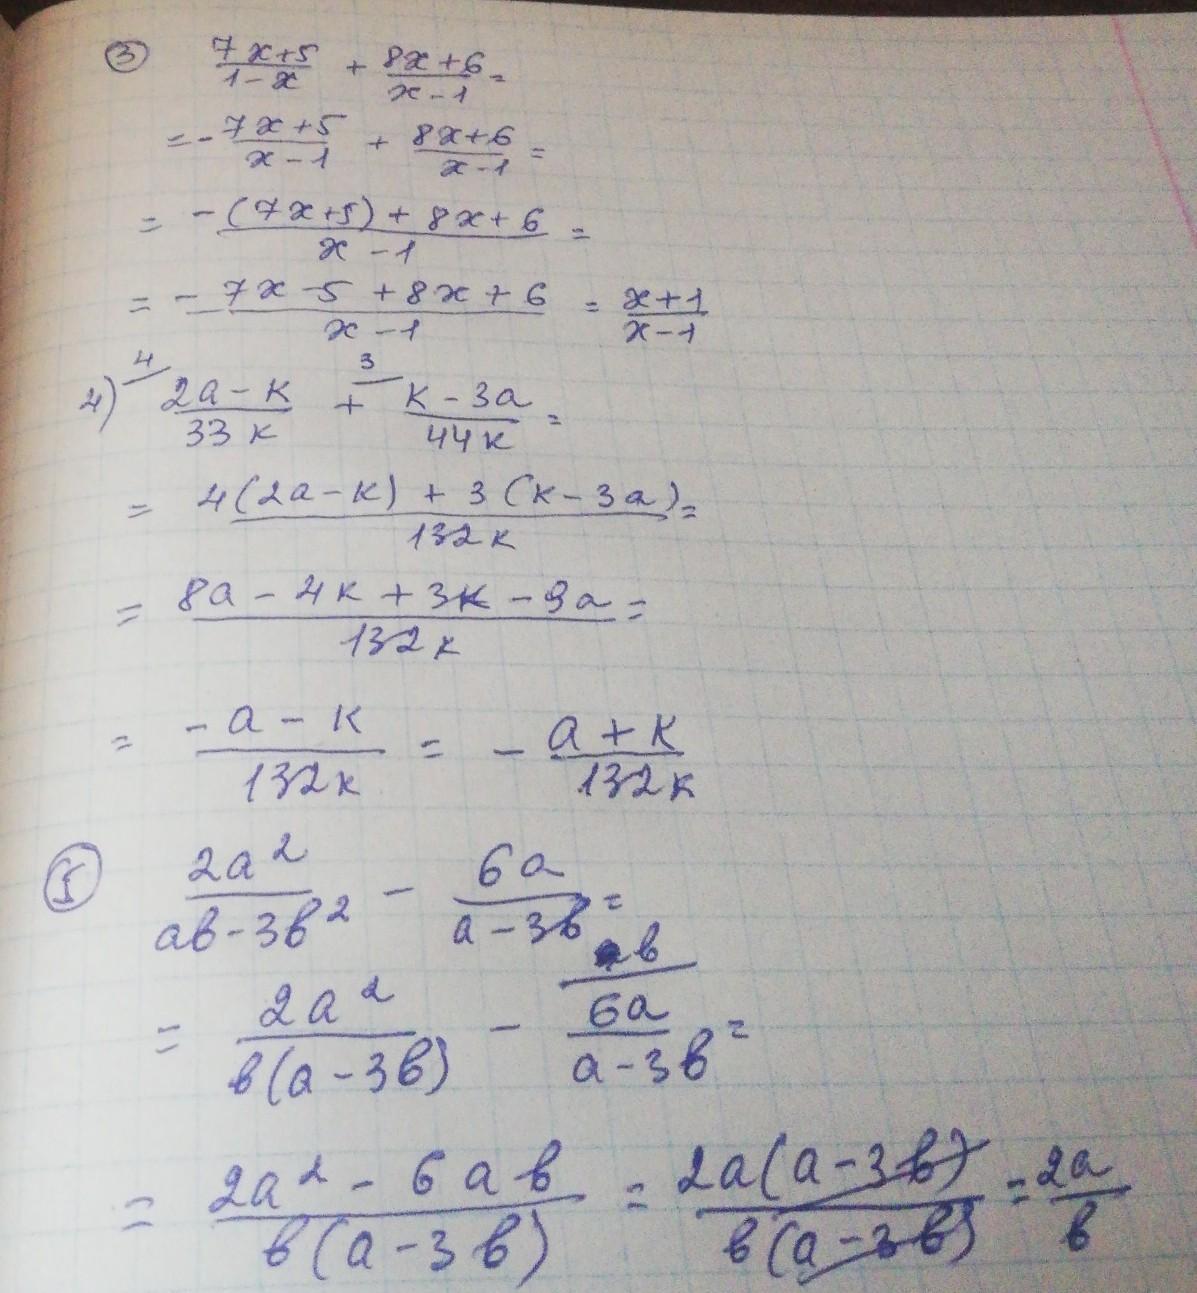 ③ (7x+5)/(1-x) + (8x+6)/(x-1) =
= - (7x+5)/(x-1) + (8x+6)/(x-1) =
= (-(7x+5) + 8x + 6)/(x-1) =
= (-7x-5+8x+6)/(x-1) = (x+1)/(x-1)
4) 4/ (2a-k)/(33k) + 3/ (k-3a)/(44k) =
= (4(2a-k) + 3(k-3a))/(132k) =
= (8a-4k+3k-9a)/(132k) =
= (-a-k)/(132k) = - (a+k)/(132k)
⑤ (2a²)/(ab-3b²) - (6a)/(a-3b) =
= (2a²)/(b(a-3b)) - b/ (6a)/(a-3b) =
= (2a²-6ab)/(b(a-3b)) = (2a(a-3b))/(b(a-3b)) = 2a/b